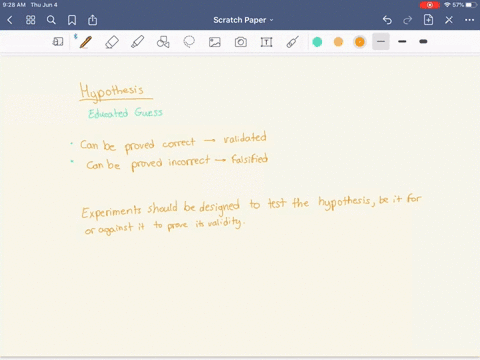 9:28 AM Thu Jun 4
57%
Scratch Paper
Hypothesis
Educated Guess
Can be proved correct → validated
Can be proved incorrect → Falsified
Experiments should be designed to test the hypothesis, be it for
or against it to prove its validity.